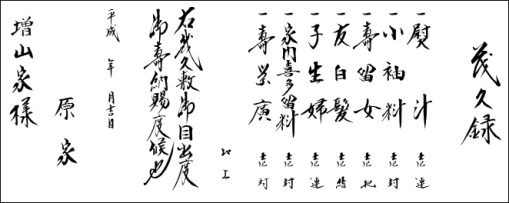 茂久録
一熨汁 壱連
一小袖料 壱封
一寿留女 壱把
一友白髪 壱結
一子生婦 壱連
一家内喜多留料 壱封
一寿栄廣 壱対
以上
右幾久敷御目出度
御寿納賜度候也
平成 年 月吉日
原家
増山家様